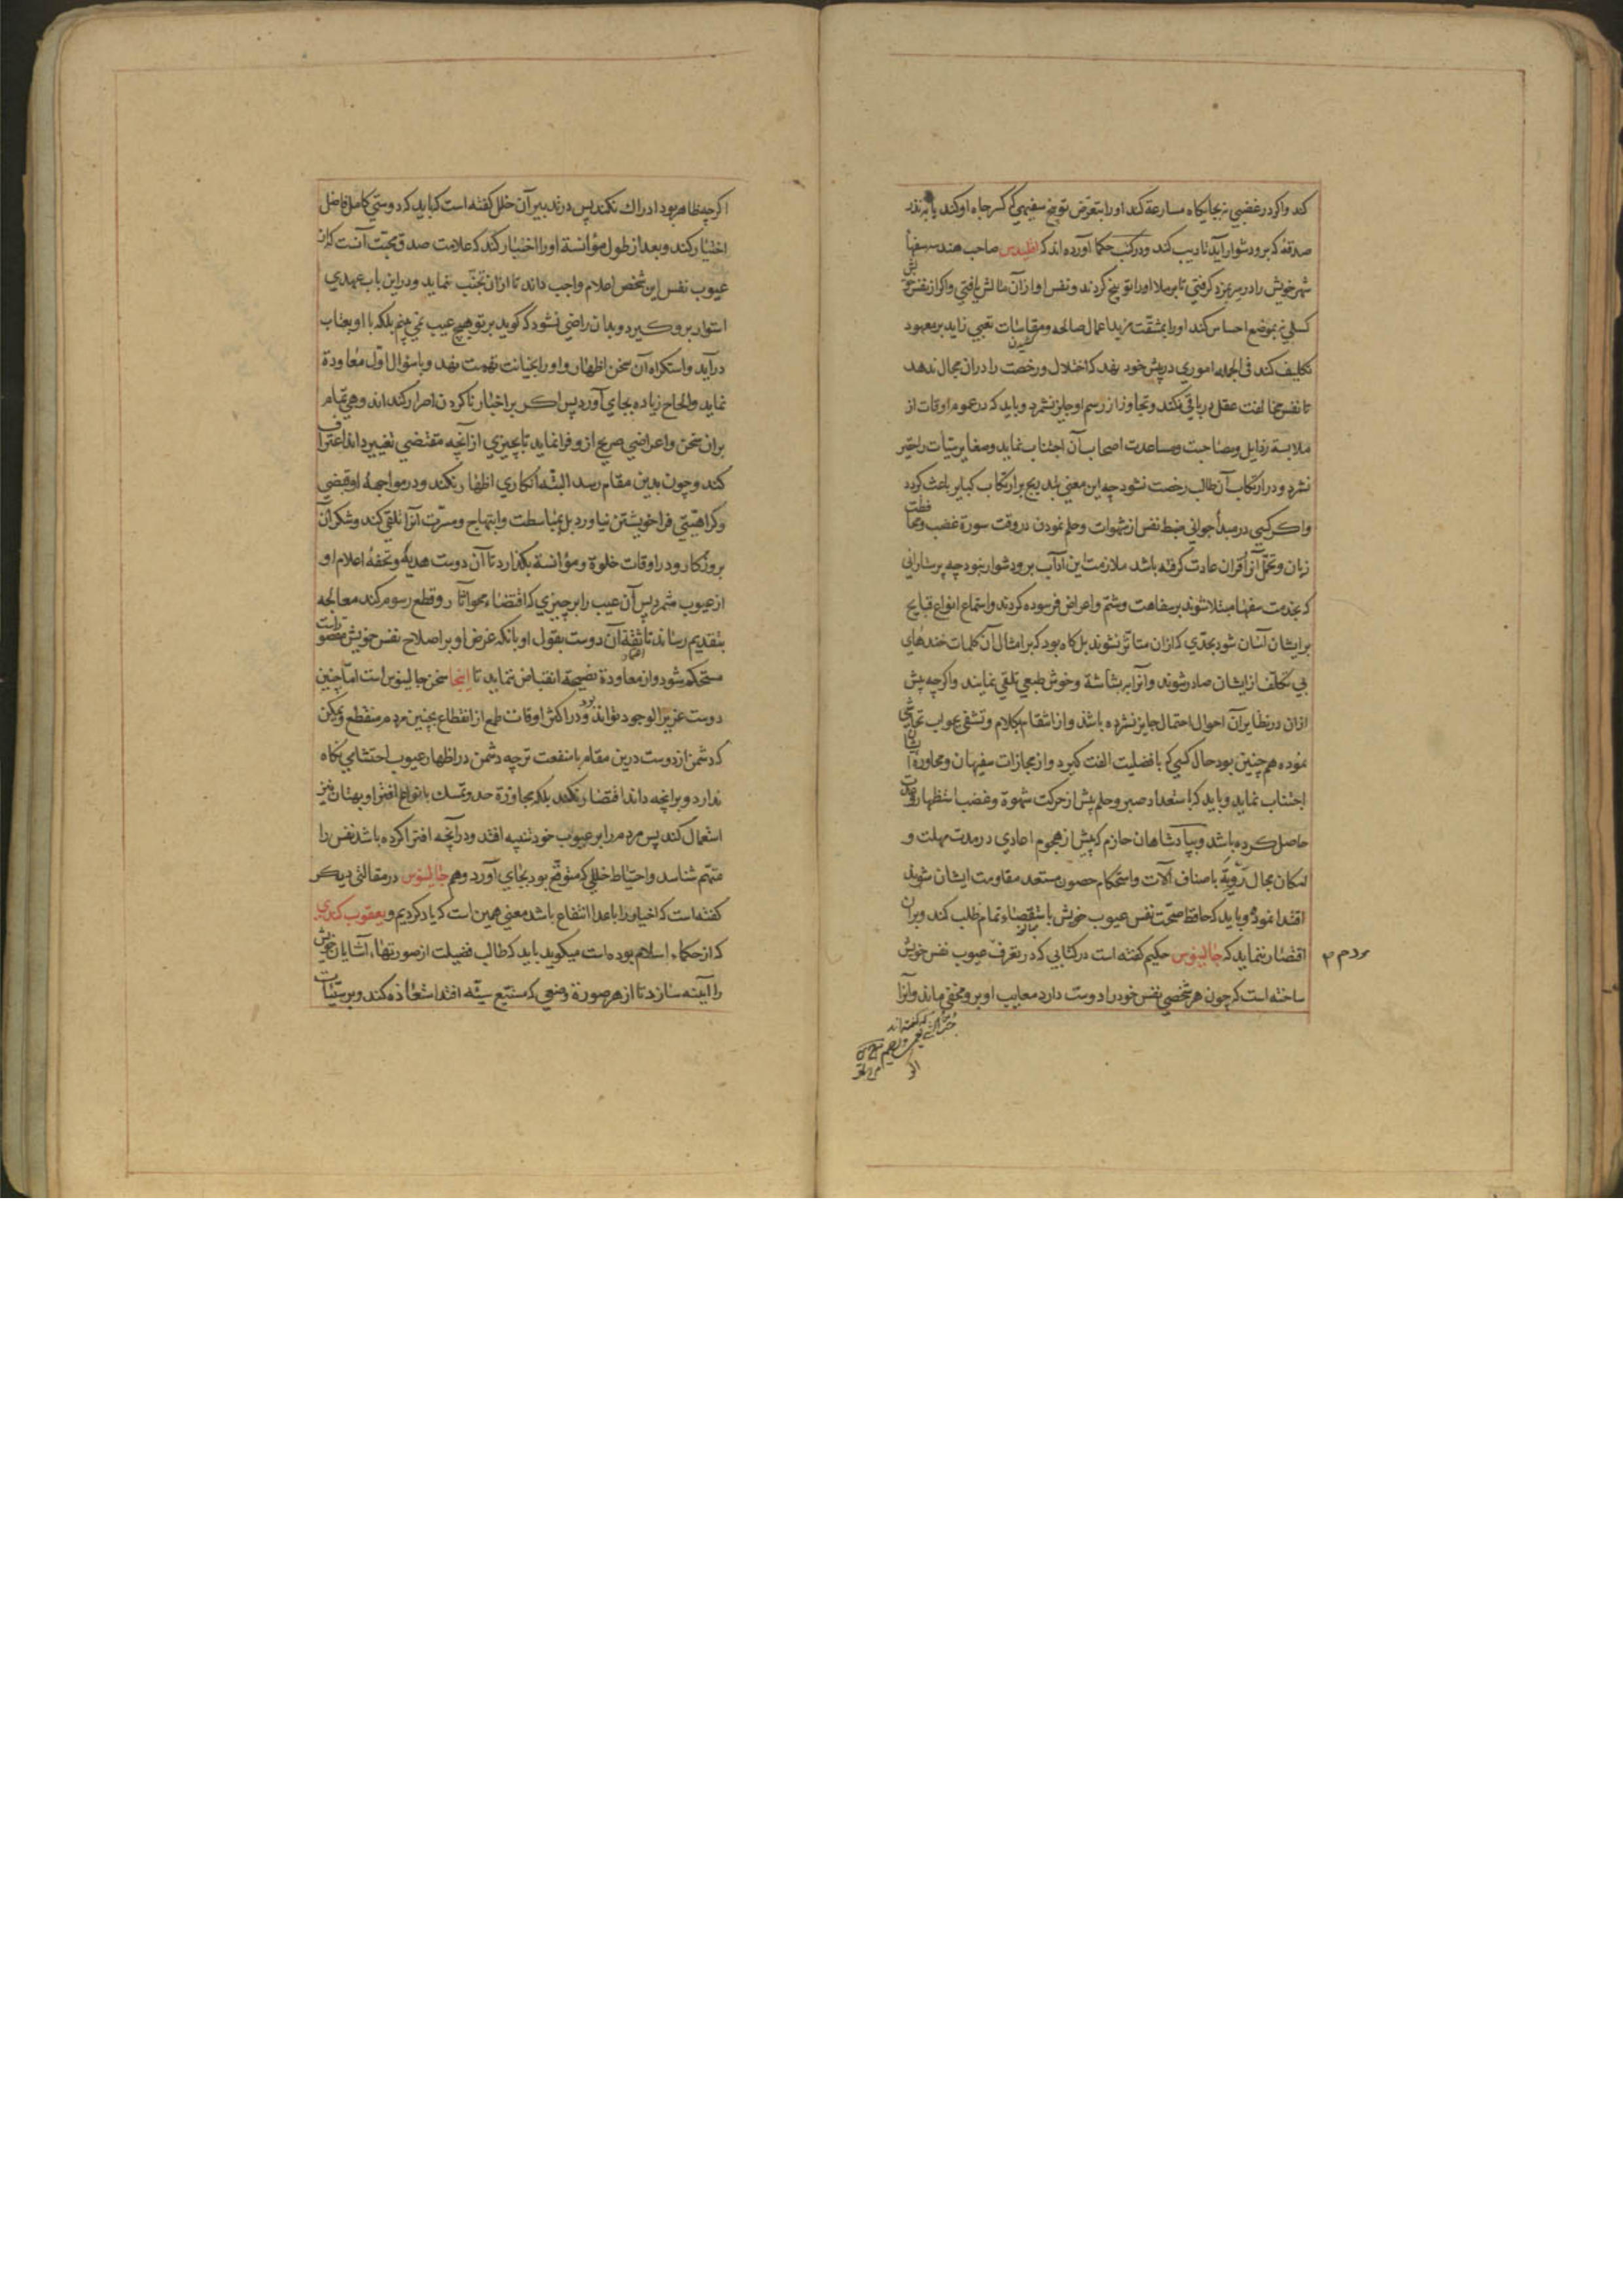 کند و اکر در غضبی نه بجایکاه مسارعة کند او را بتعرّض توبیخ سفیهی که کسر جاه او کند یا بنذر
صدقهٔ که برو دشوار آید تادیب کند و در کتب حکما آورده اند که اقلیدس صاحب هندسه سفهاء
شهر خویش را در سر بمزد کرفتی تا بر ملا او را توبیخ کردند و نفس او از آن مالش یافتی و اکر از نفس خویش
کسلی نه بموضع احساس کند او را بمشقّت مزید اعمال صالحه و مقاسات تعبی زاید بر معهود
تکلیف کند فی الجمله اموری در پیش خود نهد که اختلال و رخصت را در ان مجال ندهد
تا نفس مخالفت عقل در باقی کند و تجاوز از رسم او جایز نشمرد و باید که در عموم اوقات از
ملابسهٔ رذایل و مصاحبت و مساعدت اصحاب آن اجتناب نماید و صغایر سیئات را حقیر
نشمرد و در ارتکاب آن طالب رخصت نشود چه این معنی بتدریج بر ارتکاب کبایر باعث کردد
و اکر کسی در مبدأ جوانی ضبط نفس از شهوات و حلم نمودن در وقت سورة غضب و محافظت
زبان و تحمّل از اقران عادت کرفته باشد ملازمت این آداب برو دشوار نبود چه پرستارانی
که بخدمت سفها مبتلا شوند بر سفاهت و شتم و اعراض فرسوده کردند و استماع انواع قبایح
بر ایشان آسان شود بحدّی که از ان متأثّر نشوند بل کاه بود که بر امثال آن کلمات خندهای
بی تکلّف از ایشان صادر شوند و آنرا ببشاشة و خوش طبعی تلقّی نمایند و اکر چه پیش
ازان در نظایر آن احوال احتمال جایز نشمرده باشند و از انتقام بکلام و تشفّی بجواب تحاشی
نموده هم چنین بود حال کسی که با فضیلت الفت کیرد و از مجازات سفیهان و محاورة ایشان
اجتناب نماید و باید که استعداد صبر و حلم پیش از حرکت شهوة و غضب استظهار و قوّت
حاصل کرده باشد و بپادشاهان حازم که پیش از هجوم اعادی در مدت مهلت و
امکان مجال رؤیة باصناف آلات و استحکام حصون مستعد مقاومت ایشان شوند
اقتدا نموده و باید که حافظ صحّت نفس عیوب خویش باستقصاء تمام طلب کند و بران
اقتصار ننماید که جالینوس حکیم کفته است در کتابی که در تعرّف عیوب نفس خویش
مردم ۳
ساخته است که چون هر شخصی نفس خود را دوست دارد معایب او برو مخفی ماند و آنرا
اکر چه ظاهر بود ادراك نکند پس در تدبیر آن خلل کفته است که باید که دوستی کامل فاضل
اختیار کند و بعد از طول مؤانسة او را اخبار کند که علامت صدق محبّت آنست که از
عیوب نفس این شخص اعلام واجب داند تا ازان تجنّب نماید و در این باب عهدی
استوار برو کیرد و بدان راضی نشود که کوید بر تو هیچ عیب نمی بینم بلکه با او بعتاب
درآید و استکراه آن سخن اظهار و او را بخیانت تهمت نهد و با سؤال اوّل معاودة
نماید و الحاح زیاده بجای آورد پس اکر بر اخبار ناکردن اصرار کند اندوهی تمام
بران سخن و اعراضی صریح از و فرا نماید تا بچیزی از آنچه مقتضی تغییر داند اعتراف
کند و چون بدین مقام رسد البتّه انکاری اظهار نکند و در مواجههٔ او قبضی
و کراهیّتی فرا خویشتن نیاورد بل بمباسطت و ابتهاج و مسرّت آنرا تلقّی کند و شکر آن
بروزکار و در اوقات خلوة و مؤانسة بکذارد تا آن دوست هدیه و تحفهٔ اعلام او
از عیوب شمرد پس آن عیب را بر چیزی که اقتضاء محو آثار و قطع رسوم کند معالجه
بتقدیم رساند تا ثقهٔ آن دوست بقول او بانکه غرض او بر اصلاح نفس خویش مقصور است
مستحکم شود و از معاودة نصیحة انقباض ننماید تا اینجا سخن جالینوس است امّا چنین
دوست عزیز الوجود تواند بود و در اکثر اوقات طمع از انقطاع بچنین مردم منقطع و یمکن
که دشمن از دوست درین مقام با منفعت تر چه دشمن در اظهار عیوب احتشامی نکاه
ندارد و برانچه داند اقتصار نکند بلکه بمجاوزة حد و تمسّك بانواع افترا و بهتان نیز
استعمال کند پس مردم را بر عیوب خود تنبیه افتد و در آنچه افترا کرده باشد نفس را
متهم شناسد و احتیاط خللی که متوقّع بود بجای آورد و هم جالینوس در مقالتی دیکر
کفته است که اخیار را باعدا انتفاع باشد معنی همین است که یاد کردیم و یعقوب کندی
که از حکماء اسلام بوده است میکوید باید که طالب فضیلت از صورتهاء آشنایان خویش
را آینه سازد تا از هر صورة وضعی که مستتبع سیّئه افتد استعاذه کند و بر سیّئات